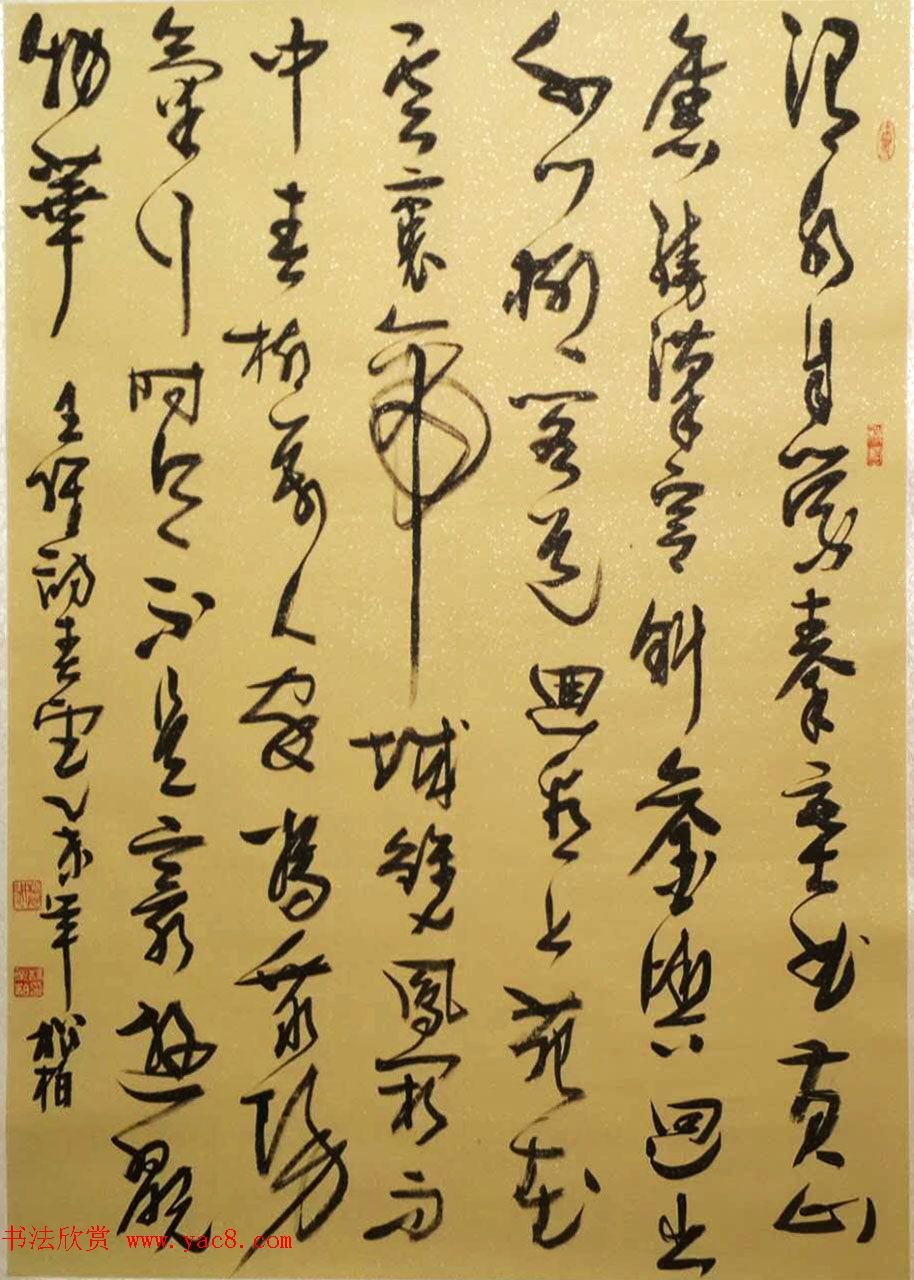 渭水自縈秦塞曲黃山
舊繞漢宮斜鑾輿迥出
千門柳閣道迴看上苑花
雲裏帝城雙鳳闕雨
中春樹萬人家為乘陽
氣行時令不是宸遊翫
物華
王維詩春望乙未年松柏
书法欣赏 www.yac8.com